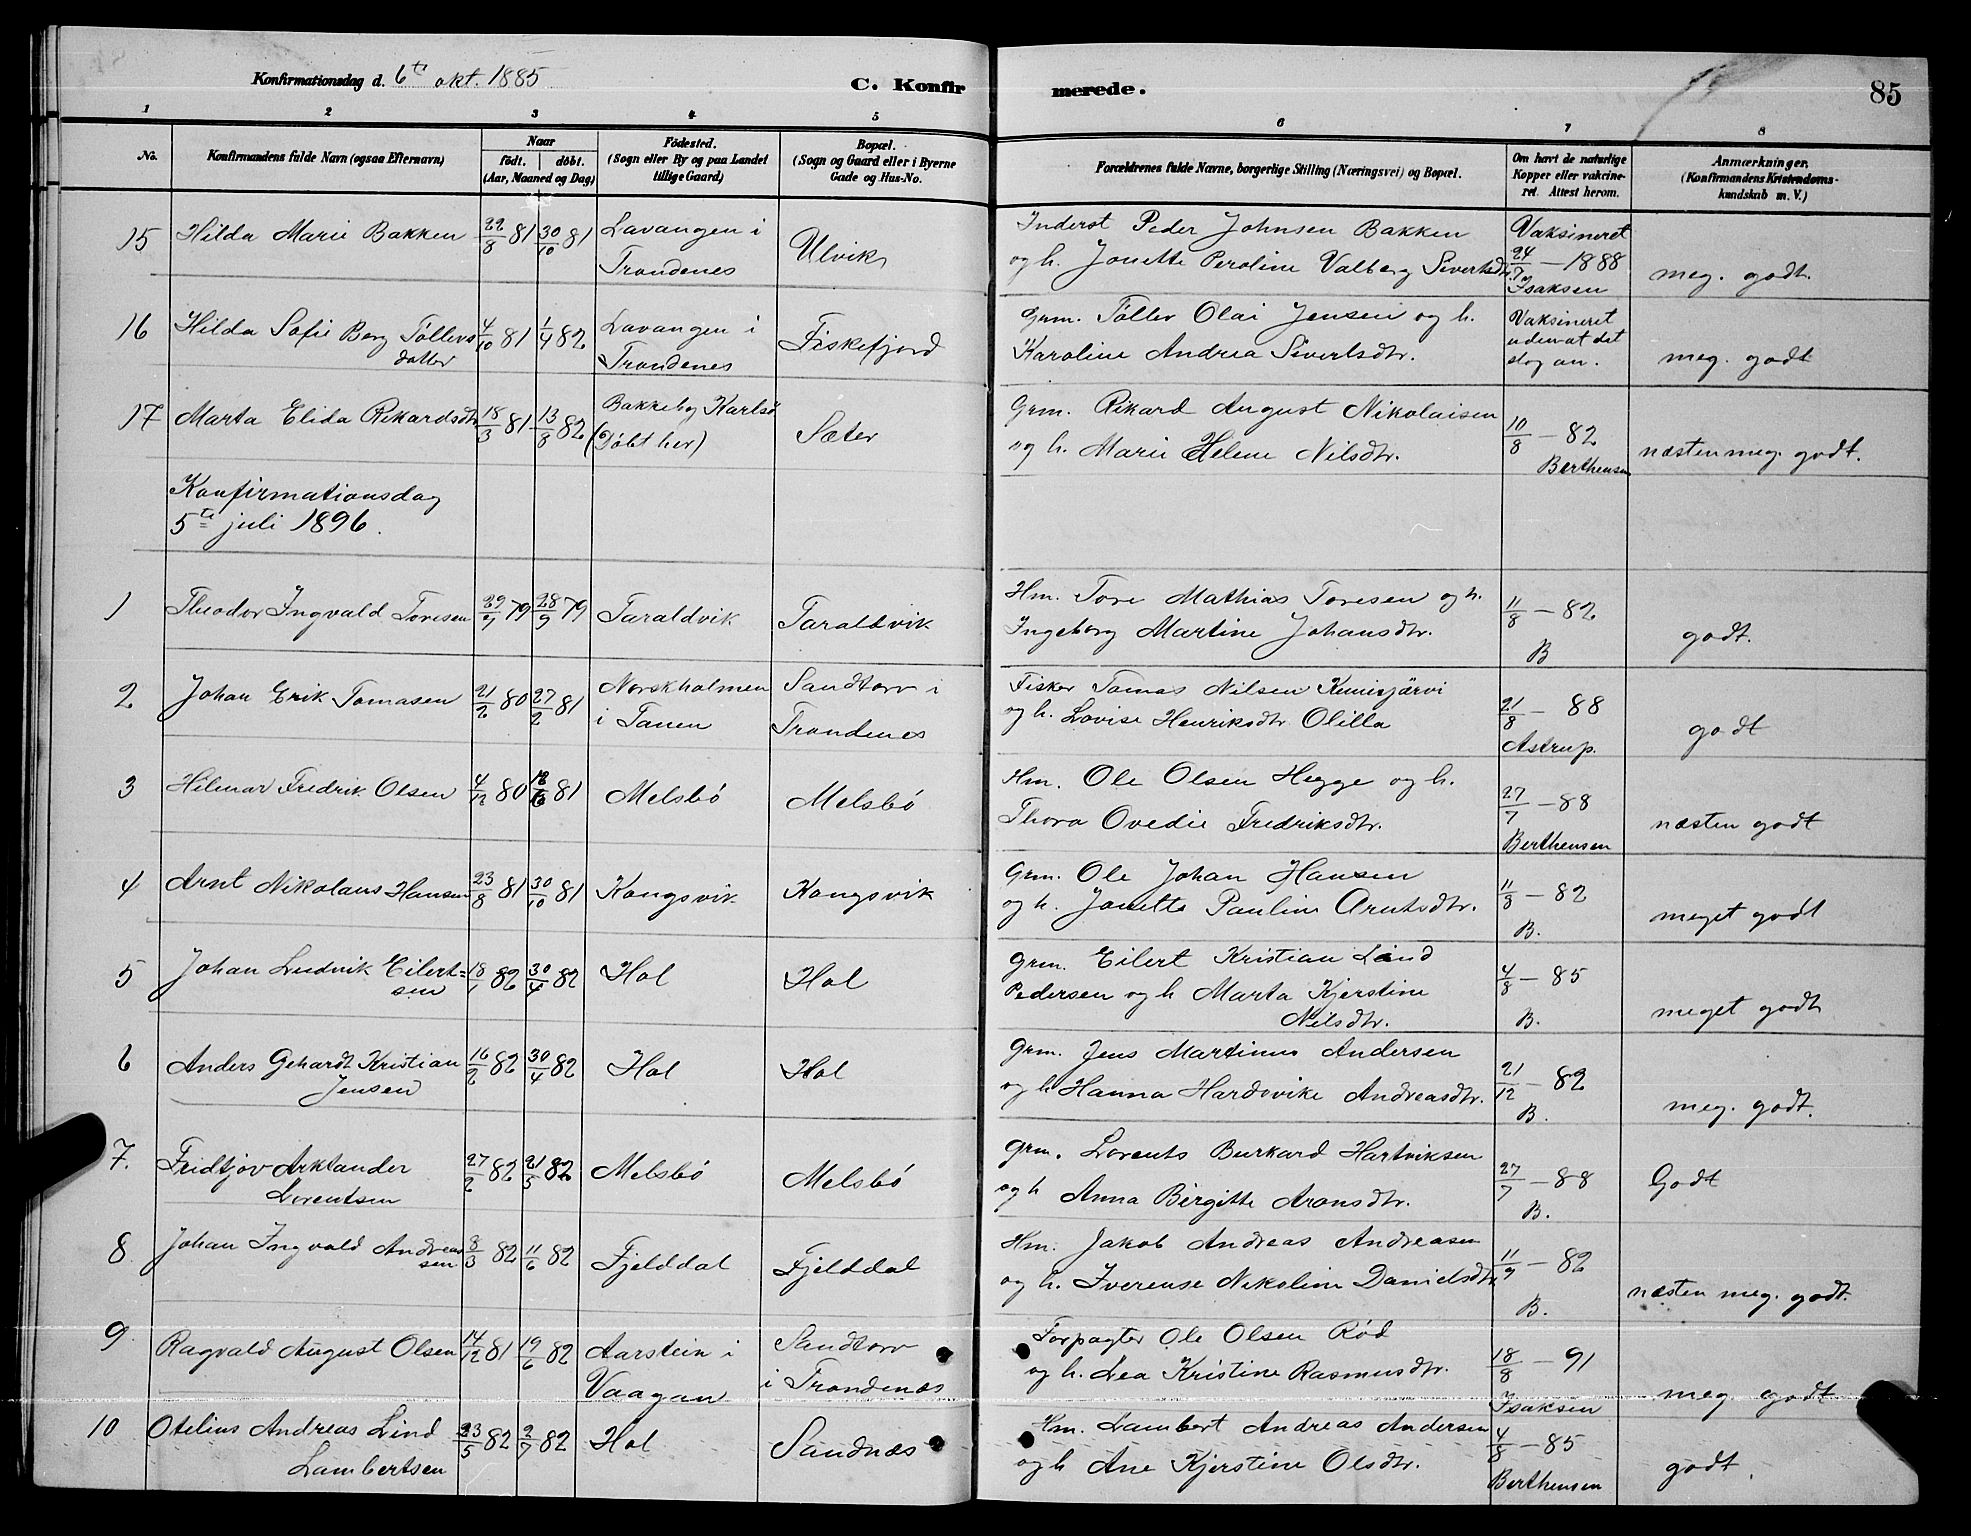 Konfirmationsdag d. 6te okt. 1885
C. Konfirmerede.
85
1 2 3 4 5 6 7 8
No.
Konfirmandens fulde Navn (ogsaa Efternavn)
Naar
födt. döbt.
(Aar, Maaned og Dag)
Födested.
(Sogn eller By og paa Landet
tillige Gaard)
Bopæl.
(Sogn og Gaard eller i Byerne
Gade og Hus-No.
Forældrenes fulde Navne, borgerlige Stilling (Næringsvei) og Bopæl.
Om havt de naturlige
Kopper eller vakcine-
ret. Attest herom.
Anmærkninger.
(Konfirmandens Kristendoms-
kundskab m. V.)
15 Hilda Marie Bakken 22/8 81 30/10 81 Lavangen i
Trondenes
Ulvik
Inderst Peder Johnsen Bakken
og h. Jonette Peroline Valberg Sivertsdtr.
Vaksineret
24/7 — 1888
Isaksen
meg. godt.
16 Hilda Sofie Berg Töllevs
datter
4/10 81 1/4 82 Lavangen i
Trondenes
Fiskefjord
Grm. Töllev Olai Jensen og h.
Karoline Andrea Sivertsdtr.
Vaksineret
uden at det
slog an.
meg. godt
17 Marta Elida Rikardsdtr 18/3 81 13/8 82 Bakkeby Karlsö
(Döbt her)
Sæter
Grm. Rikard August Nikolaisen
og h. Marie Helene Nilsdtr.
10/8 — 82
Berthensen
næsten meg. godt.
Konfirmationsdag
5te juli 1896.
1 Theodor Ingvald Toresen 29/7 79 28/9 79 Taraldvik Taraldvik
Hm. Tore Mathias Toresen og h.
Ingeborg Martine Johansdtr.
11/8 — 82
B
godt.
2 Johan Erik Tomasen 21/2 80 27/2 81 Norskholmen
i Tanen
Sandtorv i
Trondenes
Fisker Tomas Nilsen Kemisjärvi
og h. Lovise Henriksdtr. Olilla
21/8 — 88
Astrup.
godt
3 Hilmar Fredrik Olsen 4/12 80 81 Melsbö Melsbö
Hm. Ole Olsen Hegge og h.
Thora Ovedie Fredriksdtr.
27/7 — 88
Berthensen
næsten godt
4 Arnt Nikolaus Hansen 23/8 81 30/10 81 Kongsvik Kongsvik
Grm. Ole Johan Hansen
og h. Jonette Pauline Arntsdtr.
11/8 — 82
B.
meget godt
5 Johan Ludvik Eilert=
sen
18/1 82 30/4 82 Hol Hol
Grm. Eilert Kristian Lind
Pedersen og h Marta Kjerstine
Nilsdtr.
4/8 — 85
B.
meget godt
6 Anders Gehardt Kristian
Jensen
16/2 82 30/4 82 Hol Hol
Grm. Jens Martinus Andersen
og h. Hanna Hardvike Andreasdtr.
21/12 — 82
B.
meg. godt.
7. Fridtjov Arktander
Lorentsen
27/2 82 21/5 82 Melsbö Melsbö
Grm. Lorents Burkard Hartviksen
og h Anna Birgitte Aronsdtr.
27/7 — 88
B.
Godt
8. Johan Ingvald Andreas
sen
3/3 82 11/6 82 Fjelddal Fjelddal
Hm. Jakob Andreas Andreasen
og h. Iverense Nikoline Danielsdtr.
11/9 — 82
B.
næsten meg. godt.
9. Ragvald August Olsen 14/12 81 19/6 82 Aarstein i
Vaagan
Sandtorv
i Trondenæs
Forpagter Ole Olsen Rød
og h. Lea Kristine Rasmusdtr.
18/8 — 91
Isaksen
meg godt
10 Otelius Andreas Lind
Lambertsen
23/5 82 2/7 82 Hol Sandnæs
Hm. Lambert Andreas Andersen
og h Ane Kjerstine Olsdtr.
4/8 — 85
Berthensen
godt.